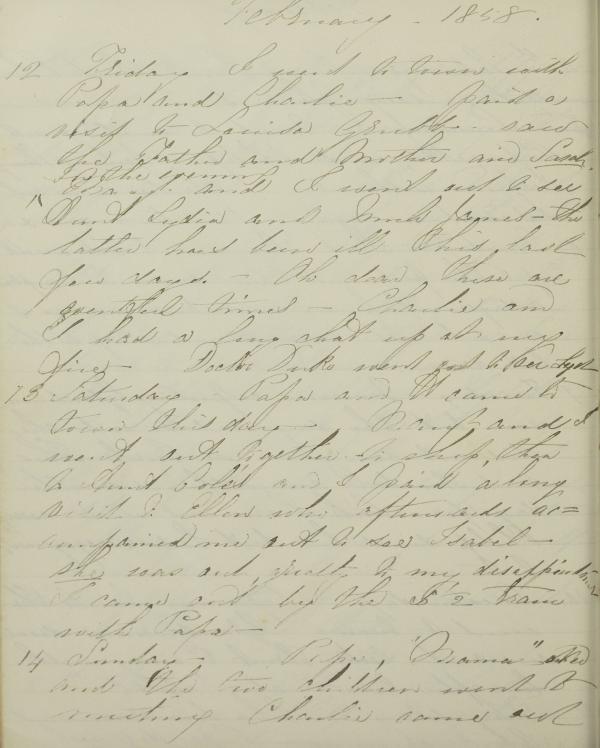 February - 1858.
12 Friday I went to town with
Papa and Charlie - paid a
visit to Louisa saw
the Father and Mother and Sarah.
In the evening
and I went out to see
"Aunt Lydia and Uncle James - the
latter has been ill this last
few days. - Oh dear these are
eventful times - Charlie and
I had a long chat up at my
fire - Doctor went out to see
13 Saturday Papa and came to
town this day - and I
went out together to shop, then
to Aunt and I paid a long
visit to Ellen who afterwards ac=
companied me out to see Isabel -
she was out, greatly to my disappointment
I came out by the 5 2 train
with Papa -
14 Sunday - Papa, "Mama" and
and the two children went to
meeting Charlie came out